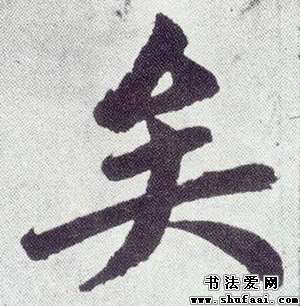 矣
书法爱网
www.shufaai.com